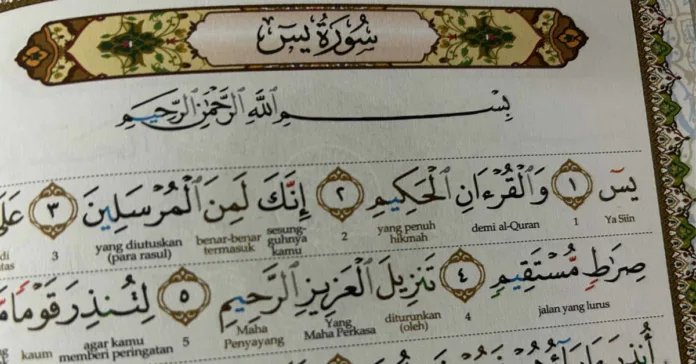 سُورَةُ يسٓ
بِسْمِ ٱللَّهِ ٱلرَّحْمَٰنِ ٱلرَّحِيمِ
يسٓ ١ وَٱلْقُرْءَانِ ٱلْحَكِيمِ ٢ إِنَّكَ لَمِنَ ٱلْمُرْسَلِينَ ٣
1 Ya Siin demi al-Quran yang penuh hikmah 2 sesung-guhnya kamu benar-benar termasuk yang diutuskan (para rasul) 3 di
صِرَٰطٍ مُّسْتَقِيمٍ ٤ تَنزِيلَ ٱلْعَزِيزِ ٱلرَّحِيمِ ٥ لِتُنذِرَ قَوْمًا
jalan yang lurus 4 diturunkan (oleh) Yang Maha Perkasa Maha Penyayang 5 agar kamu memberi peringatan kaum